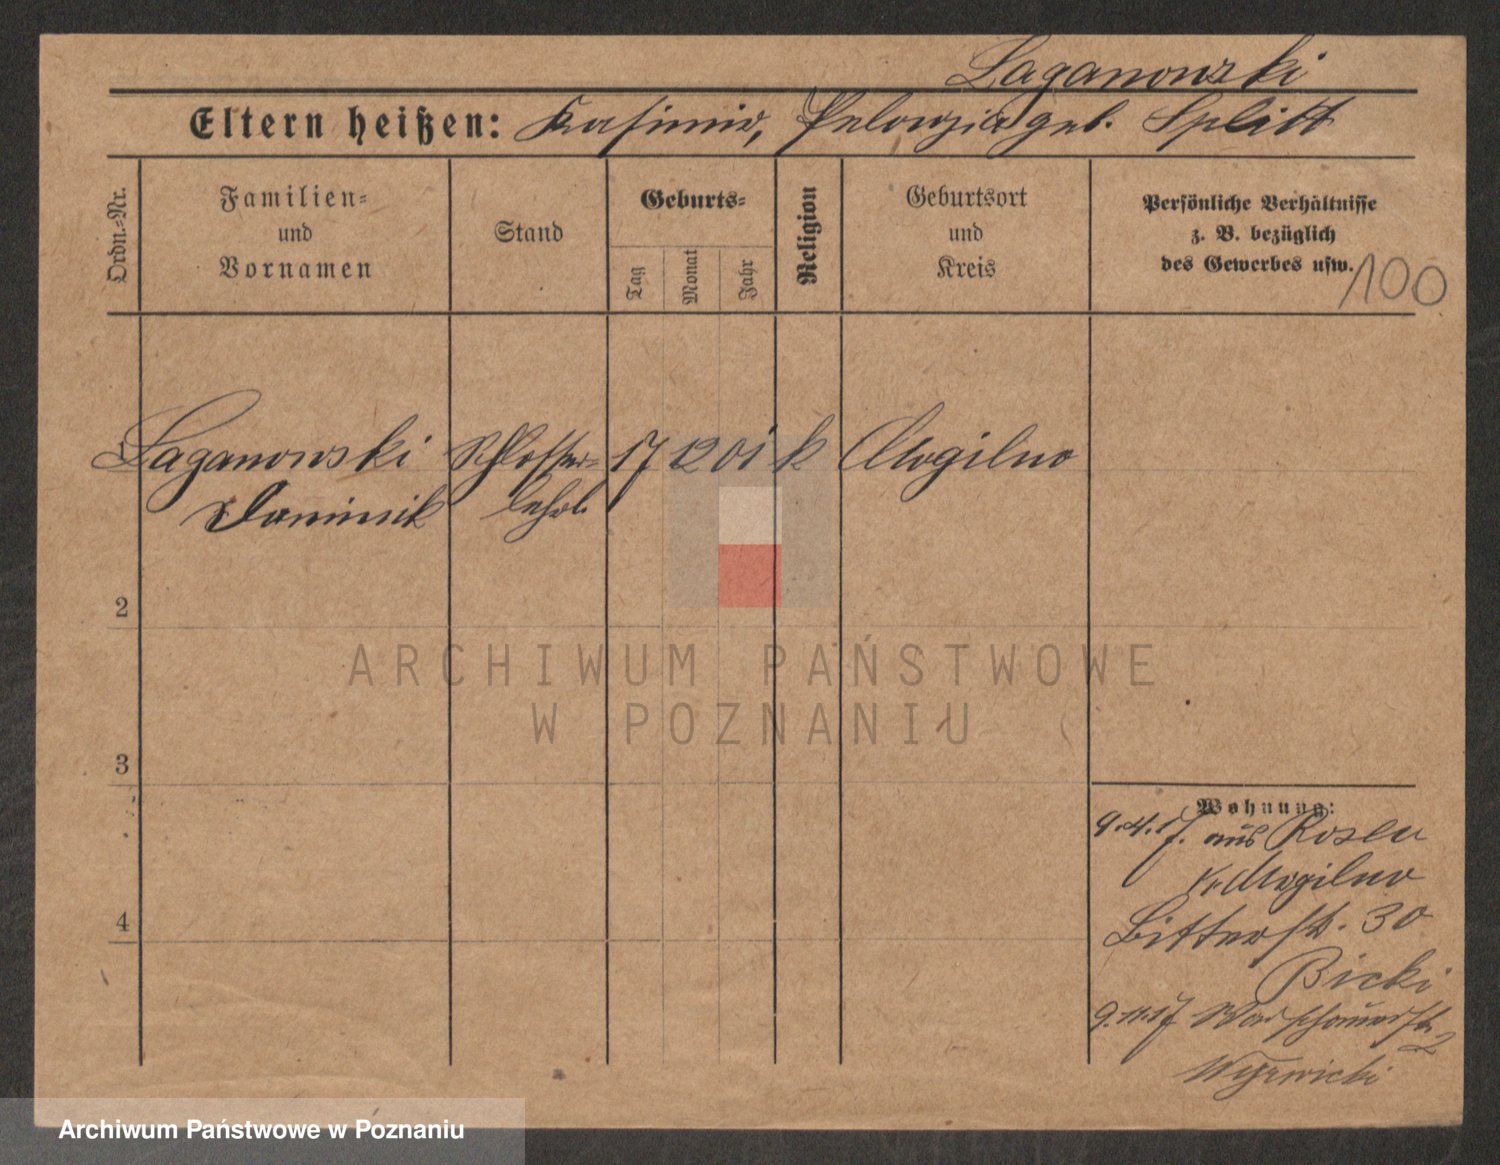 Laganowski
Eltern heißen: Kasimir, Pelagia geb. Splitt
Ordn.=Nr.
Familien=
und
Vornamen
Stand
Geburts=
Tag
Monat
Jahr
Religion
Geburtsort
und
Kreis
Persönliche Verhältnisse
z. B. bezüglich
des Gewerbes usw.
100
1 Laganowski Schlosser= 17 12 01 k Mogilno
Dominik lehrl.
2
3
4
Wohnung:
9.4.17. aus
K. Mogilno
Bitterstr. 30
Bicki
9.11.17 Warschauerstr. 2
Wyrwicki
ARCHIWUM PAŃSTWOWE
W POZNANIU
Archiwum Państwowe w Poznaniu